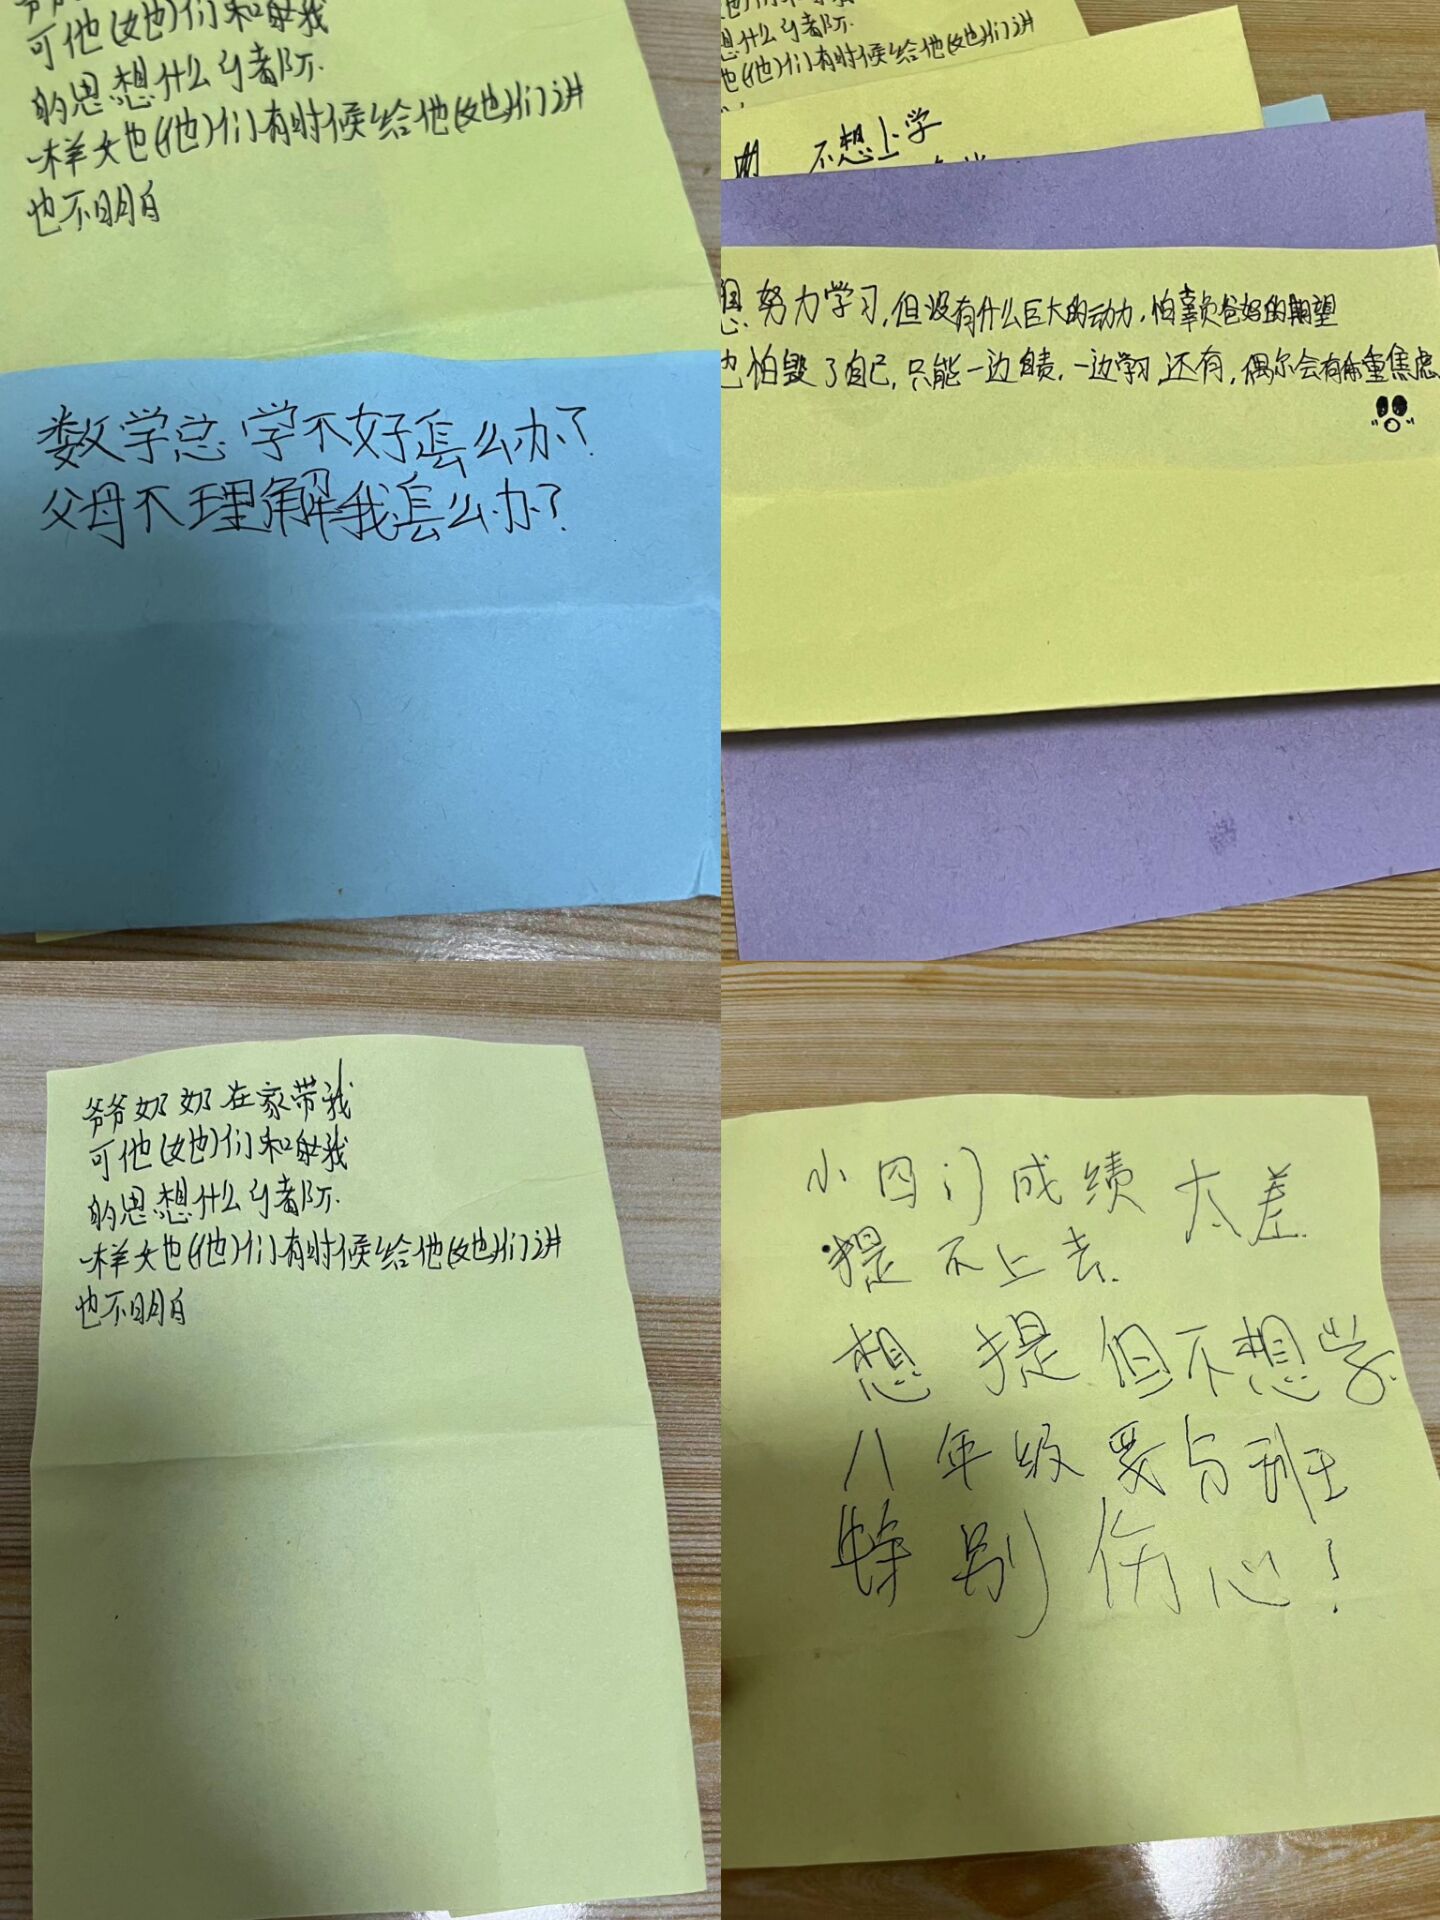 可他(她)们和我
的思想什么行都不
样她(他)们有时候给他(她)们讲
也不明白
数学总学不好怎么办?
父母不理解我怎么办?
想什么行都不
也(他)们有时候给他(她)们讲
不想上学
想努力学习,但没有什么巨大的动力,怕辜负爸妈的期望
也怕毁了自己,只能一边自责,一边学习,还有,偶尔会有严重焦虑
爷爷奶奶在家带我
可他(她)们和我
的思想什么行都不
一样她(他)们有时候给他(她)们讲
也不明白
小四门成绩太差
提不上去.
想提但不想学.
八年级要分班
特别伤心!